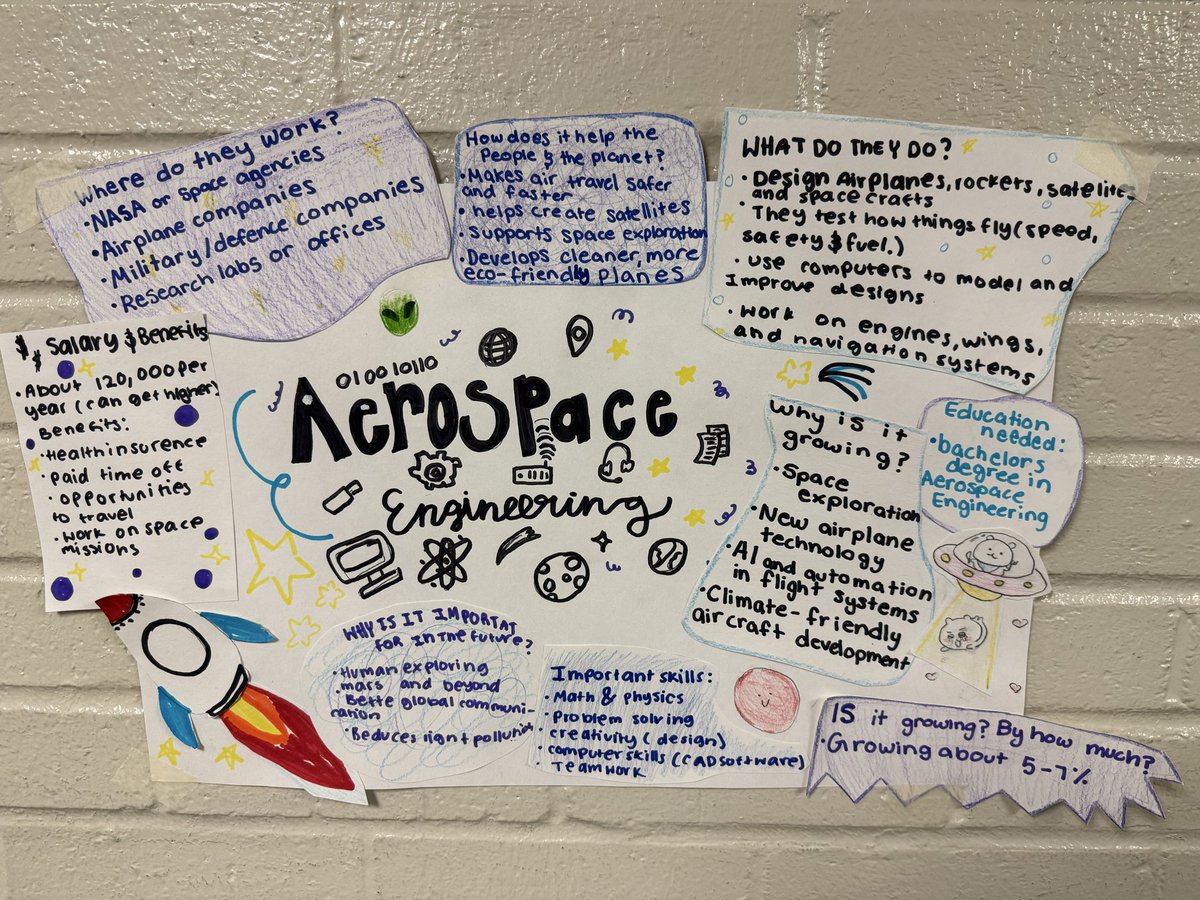 Where do they work?
• NASA or Space agencies
• Airplane companies
• Military/defence companies
• Research labs or offices
How does it help the
People & the planet?
• Makes air travel safer
and faster
• helps create satellites
• Supports space exploration
• Develops cleaner, more
eco-friendly planes
WHAT DO THEY DO?
• Design Airplanes, rockets, satelites
and space crafts
• They test how things fly (speed,
safety & fuel.)
• use computers to model and
Improve designs
• Work on engines, wings,
and navigation systems
$ Salary & Benefits
• About 120,000 per
year (can get higher)
Benefits:
• Health insurence
• paid time off
• opportunities
to travel
• work on space
missions
010010110
Aerospace
Engineering
Why is it
growing?
• Space
exploration
• New airplane
technology
• AI and automation
in flight systems
• Climate-friendly
aircraft development
Education
needed:
• bachelors
degree in
Aerospace
Engineering
WHY IS IT IMPORTAT
FOR IN THE future?
• Human exploring
mars and beyond
• Bette global communi-
cation
• Reduces
Important skills:
• Math & physics
• Problem solving
• creativity (design)
• computer skills (CAD software)
• Teamwork
IS it growing? By how much?
• Growing about 5-7%